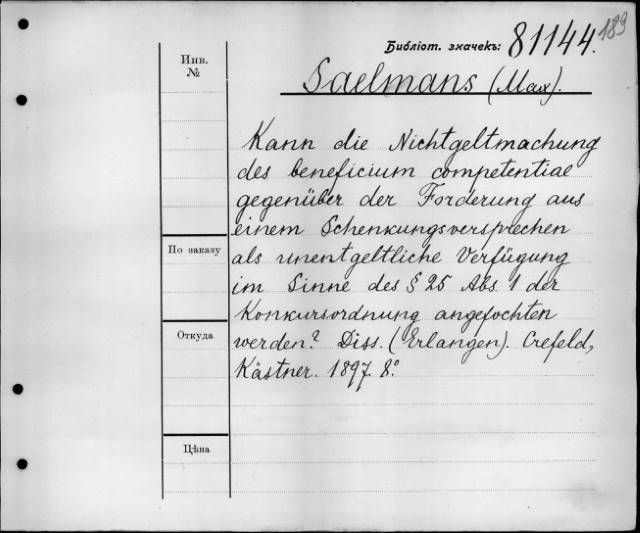 183
Библіот. значекъ: 81144.
Инв. №
Saelmans (Max).
Kann die Nichtgeltmachung
des beneficium competentiae
gegenüber der Forderung aus
einem Schenkungsversprechen
По заказу
als unentgeltliche Verfügung
im Sinne des § 25 Abs. 1 der
Konkursordnung angefochten
Откуда
werden? Diss. (Erlangen). Crefeld,
Kästner. 1897. 8.º
Цѣна